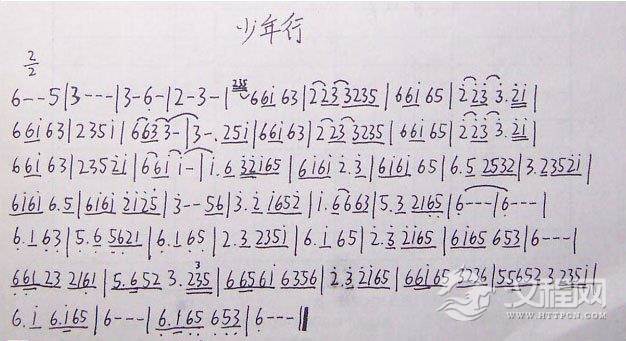 少年行
2/2
6--5|3---|3-6-|2-3-|235 66i 63|223 3235|66i 65|223 3.2i|
66i 63|235i|663 3-|3-.25i|66i 63|223 3235|66i 65|223 3.2i|
66i 63|2352i|66i i-|i.6 32i65|6i6i 2.3|6i6i 65|6.5 2532|3.2352i|
6i6i 6.5|6i6i 2i25|3--56|3.2 i652|i.6663|5.3 2165|6---|6---|
6.1 63|5.6 5621|6.1 65|2.3 235i|6.i 65|2.3 2i65|6i65 653|6---|
661 23 2161|5.652 3.235|6656i 6356|2.3 2i65|66i65 3236|55652 3235i|
6.i 6.i65|6---|6.165 653|6---‖
文程网
WWW.HTTPCN.COM